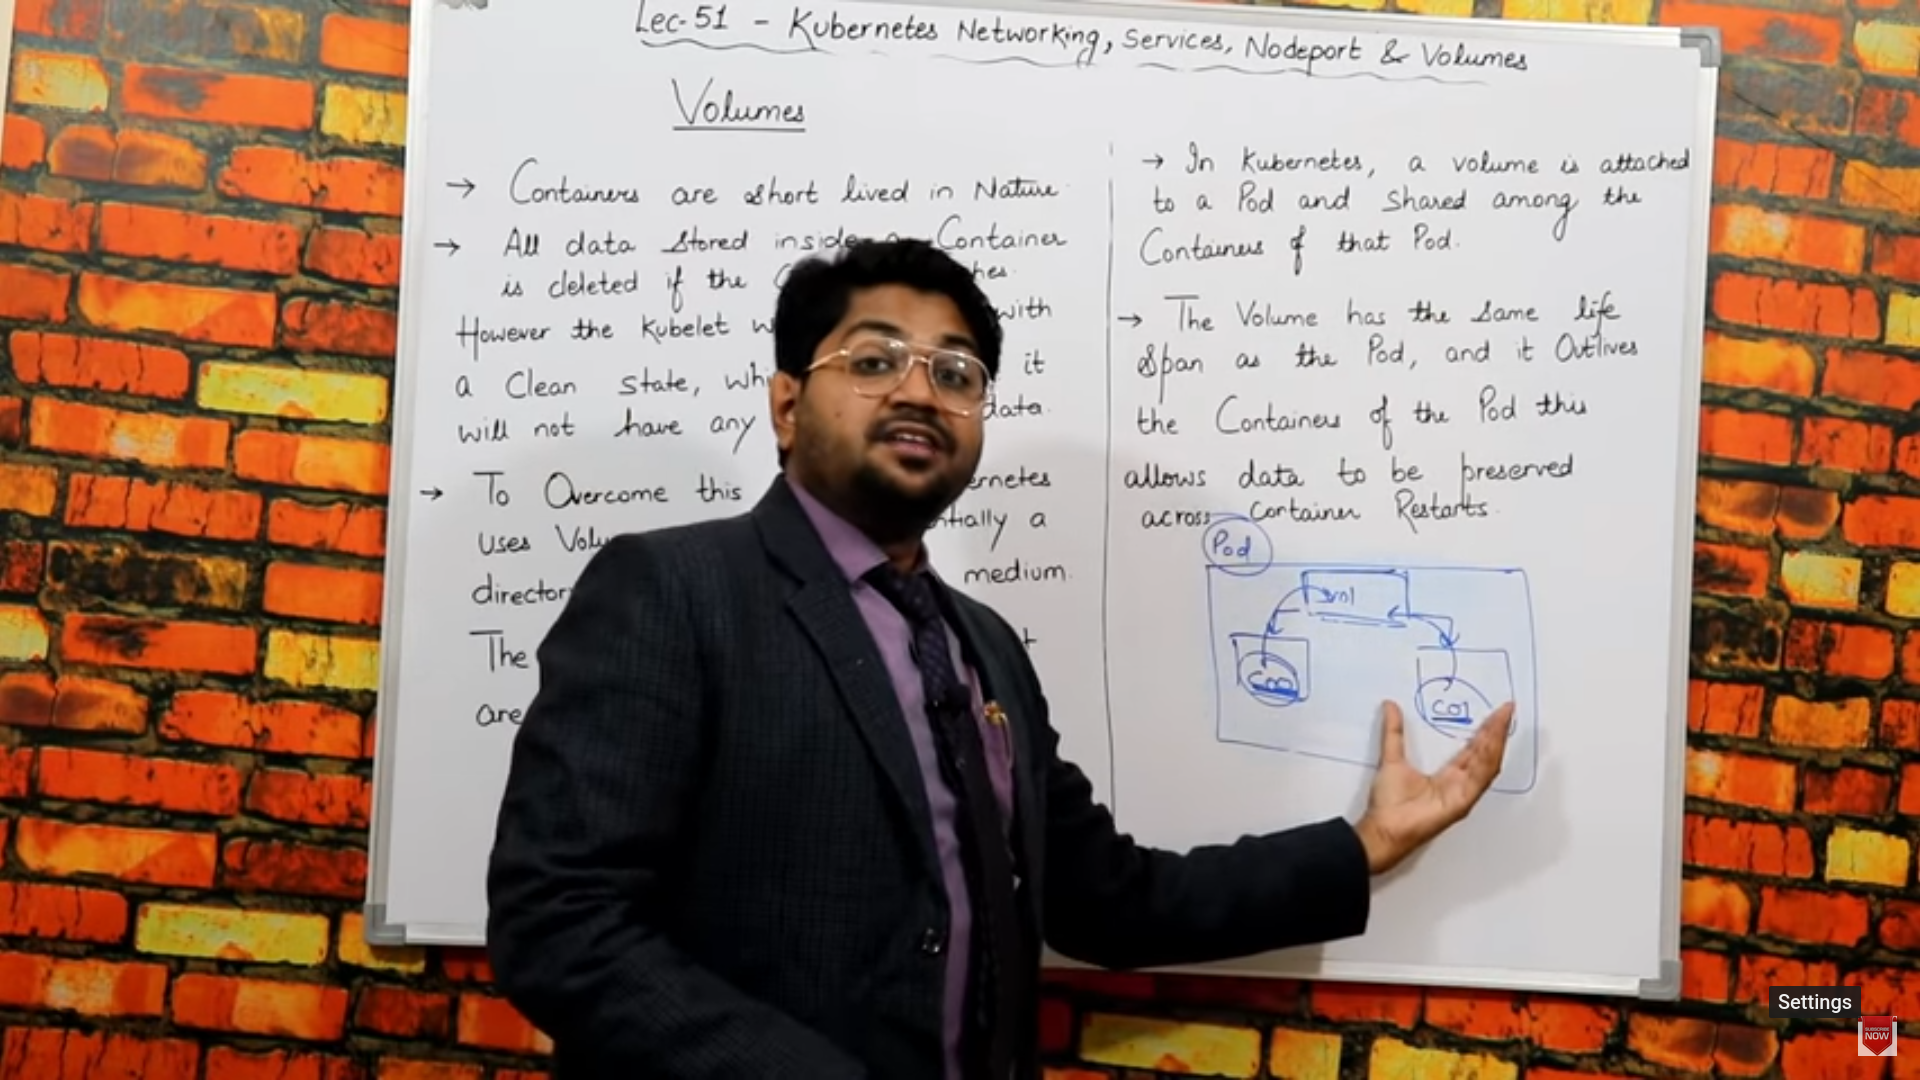 Lec-51 - Kubernetes Networking, Services, Nodeport & Volumes
Volumes
→ Containers are short lived in Nature.
→ All data stored inside a Container
is deleted if the
However the Kubelet with
a Clean State, it
will not have any data.
→ To Overcome this
uses a
medium.
The
are
→ In Kubernetes, a volume is attached
to a Pod and shared among the
Containers of that Pod.
→ The Volume has the same life
span as the Pod, and it Outlives
the Containers of the Pod this
allows data to be preserved
across Container Restarts.
Pod
Vol
C00
C01
Settings
SUBSCRIBE
NOW